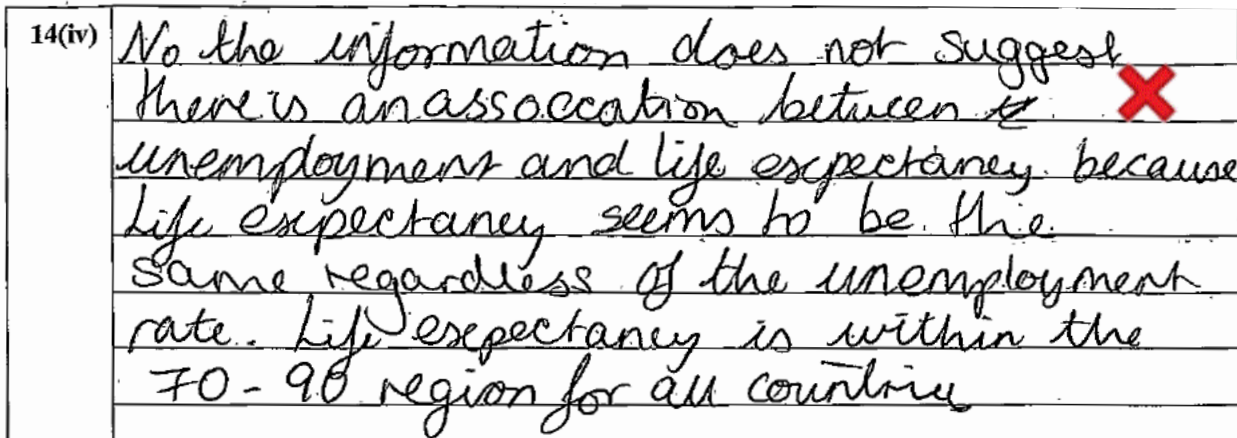 14(iv) No the information does not suggest
there is an assoccation between
unemployment and life expectancy. because
Life expectancy seems to be the
same regardless of the unemployment
rate. Life expectancy is within the
70-90 region for all countries